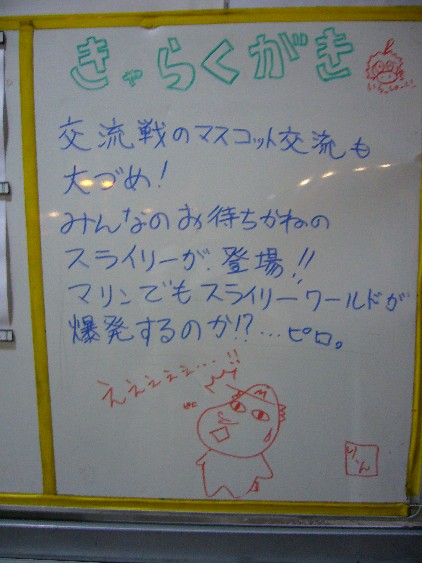 きゃらくがき
交流戦のマスコット交流も
大づめ!
みんなのお待ちかねの
スライリーが、登場!!
マリンでもスライリーワールドが
爆発するのか!?…ピロ。
えぇぇぇぇ…!!
M
りん